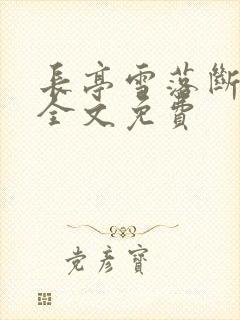 長亭雪落斷
全文免費
党彥寶